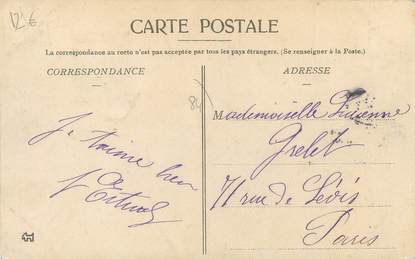 12 €
CARTE POSTALE
La correspondance au recto n'est pas acceptée par tous les pays étrangers. (Se renseigner à la Poste.)
CORRESPONDANCE
ADRESSE
84
Je t'aime bien
Mademoiselle Lucienne
Grelet
71 rue de Lévis
Paris